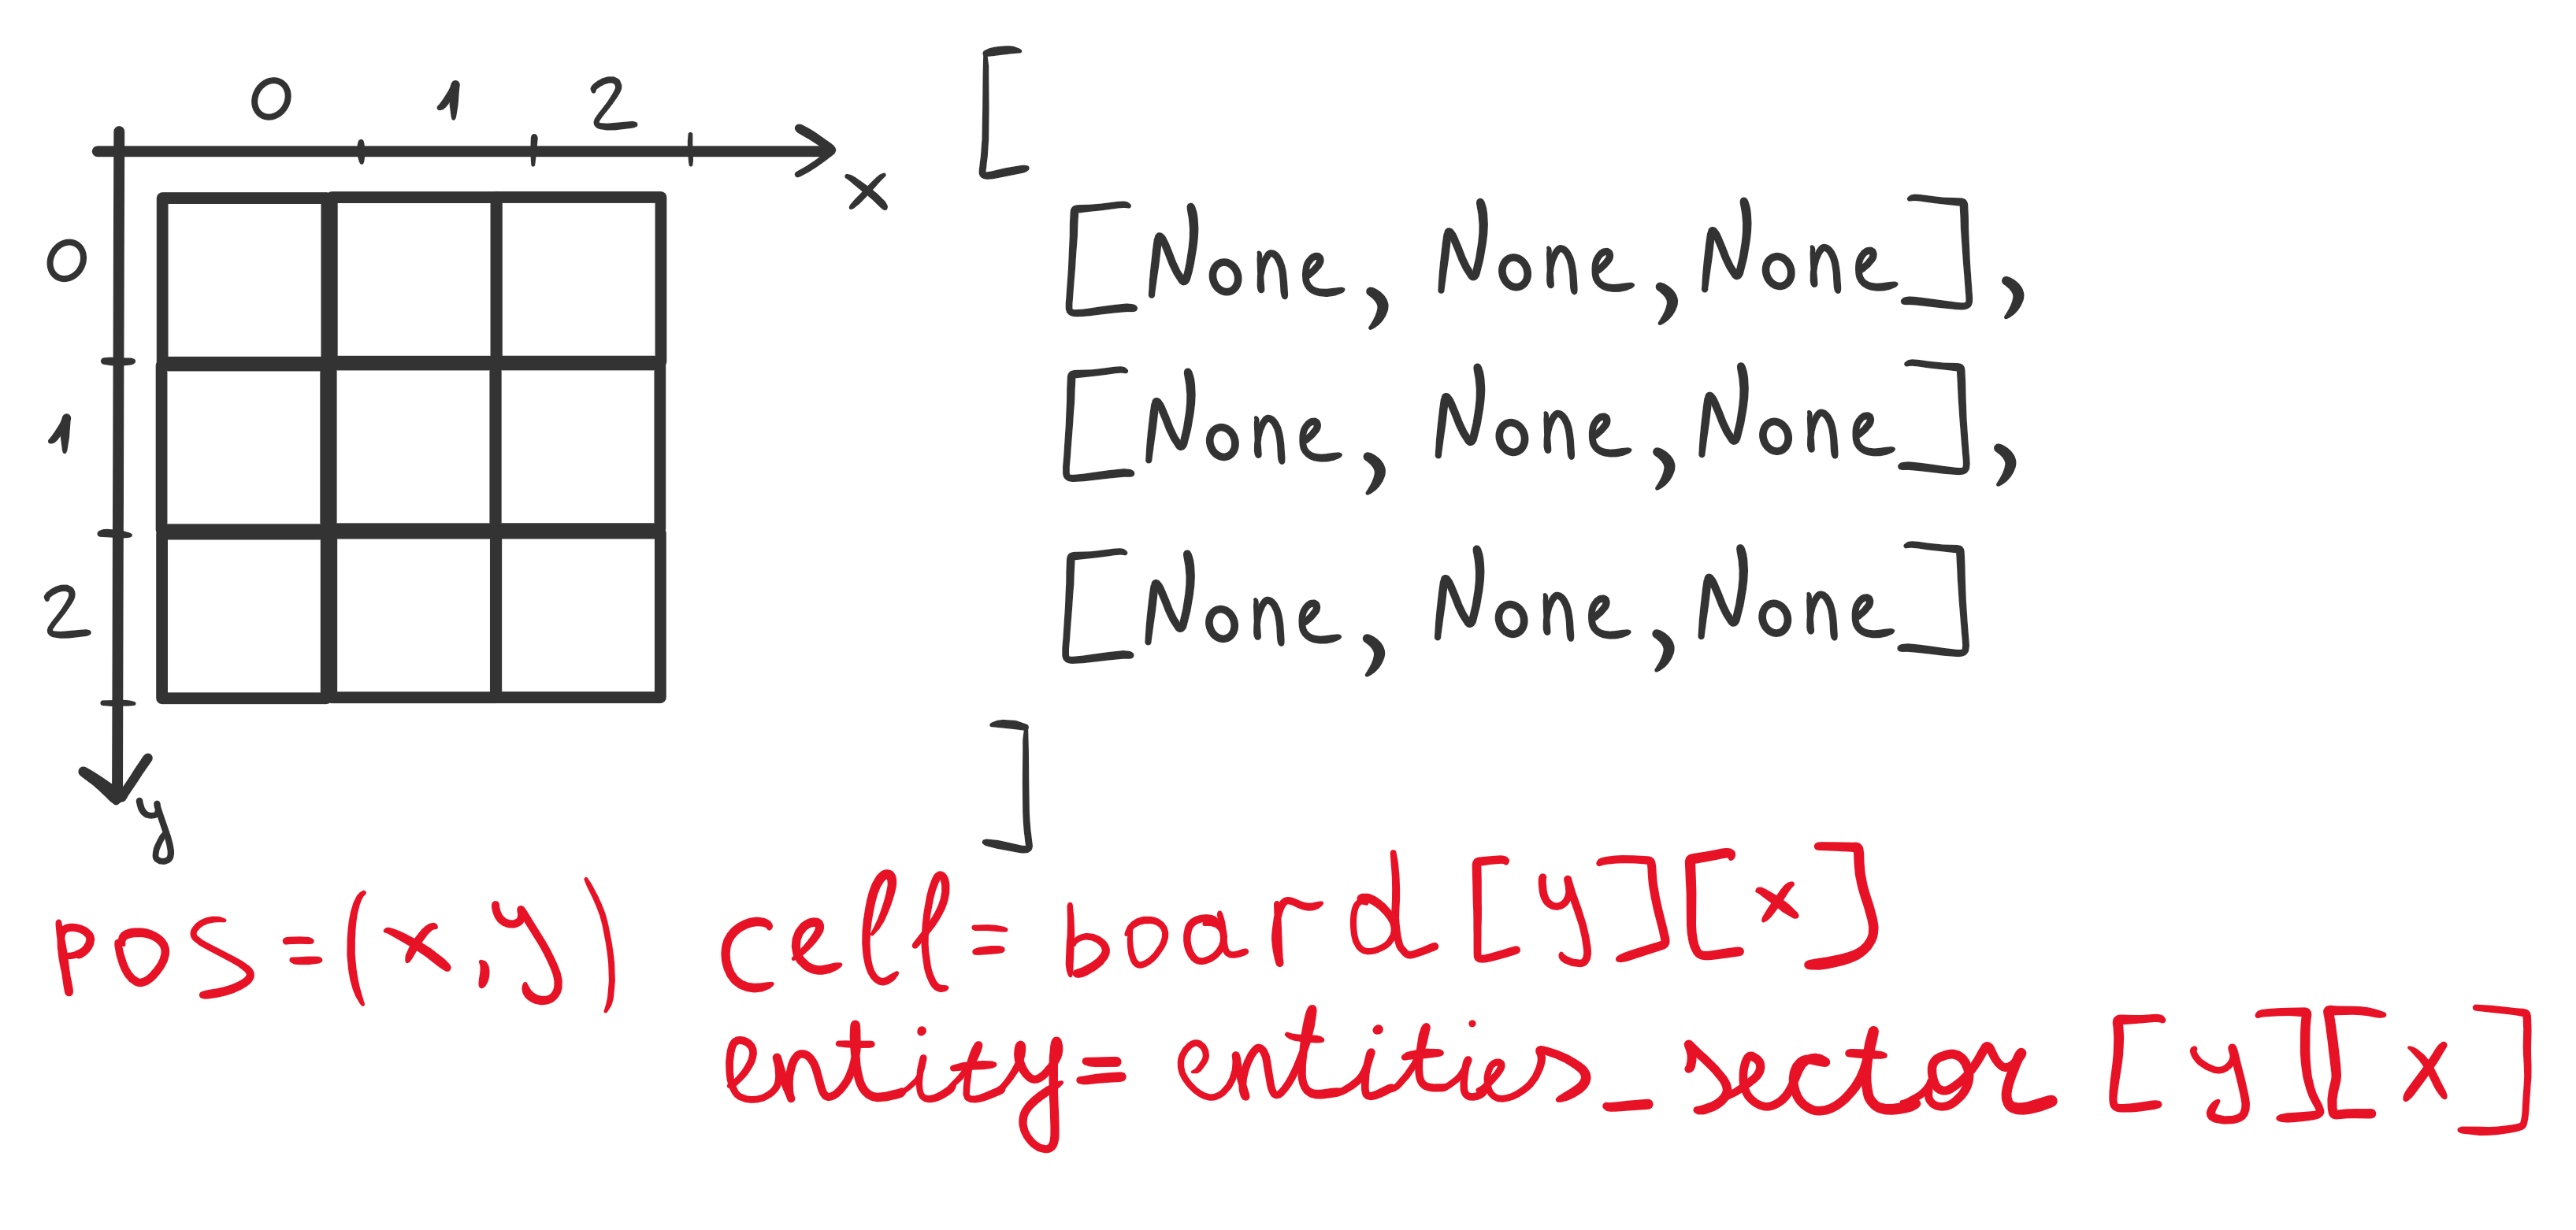 0 1 2
x
0
1
2
y
[
[None, None, None],
[None, None, None],
[None, None, None]
]
pos=(x,y) cell=board[y][x]
entity=entities_sector[y][x]